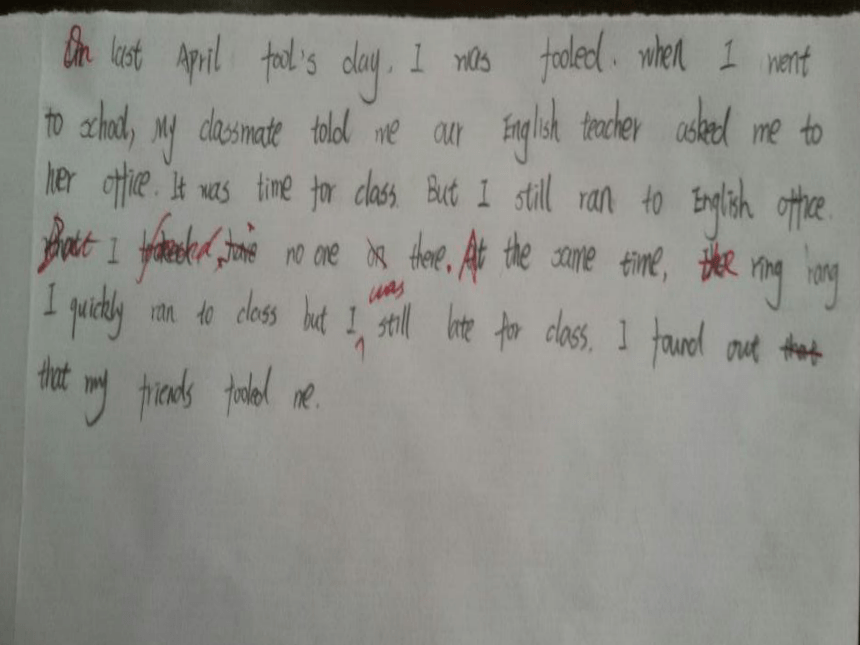 On last April fool's day. I was fooled. when I went
to school, My classmate told me our English teacher asked me to
her office. It was time for class. But I still ran to English office.
But I found, no one there. At the same time, the ring rang
I quickly ran to class but I was still late for class. I found out that
that my friends fooled me.